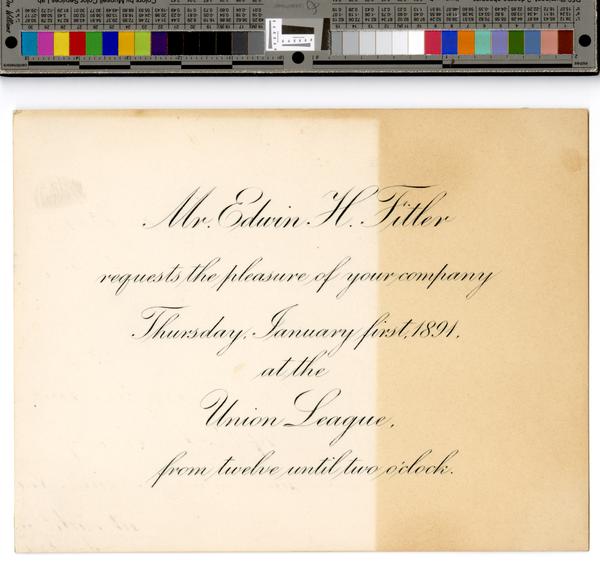 Mr. Edwin H. Fitler
requests the pleasure of your company
Thursday, January first, 1891,
at the
Union League,
from twelve until two o'clock.